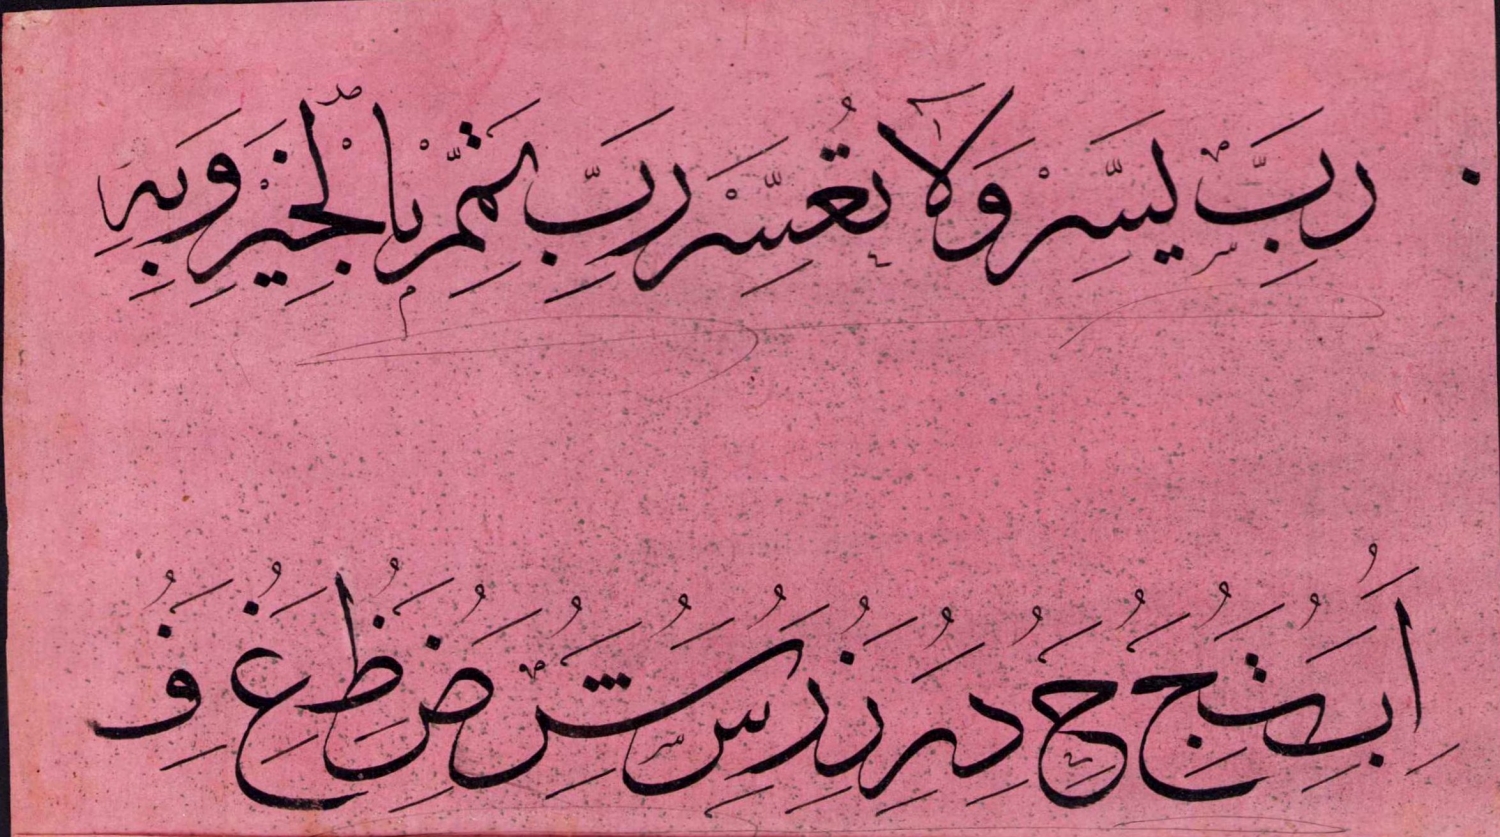 رَبِّ يَسِّرْ وَلَا تُعَسِّرْ رَبِّ تَمِّمْ بِالْخَيْرِ وَبِهِ
ا ب ت ج ح د ر ز س ش ض ظ غ ف